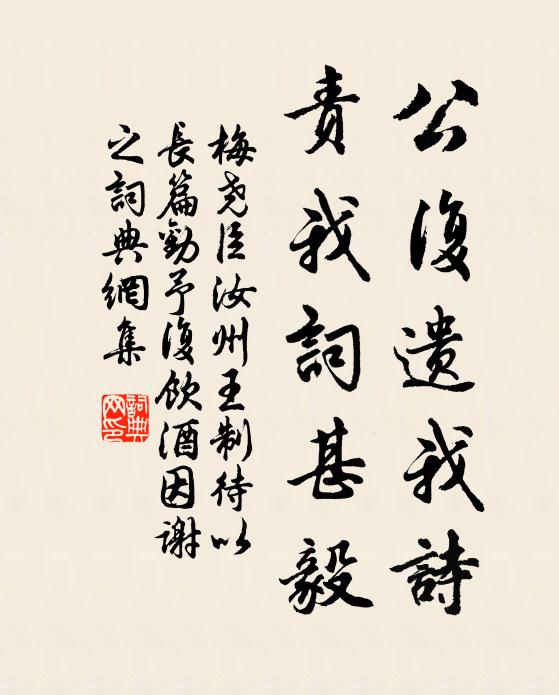 公復遺我詩
責我詞甚毅
梅堯臣汝州王制待以
長篇勸予復飲酒因謝
之詞典網集
詞典
网印